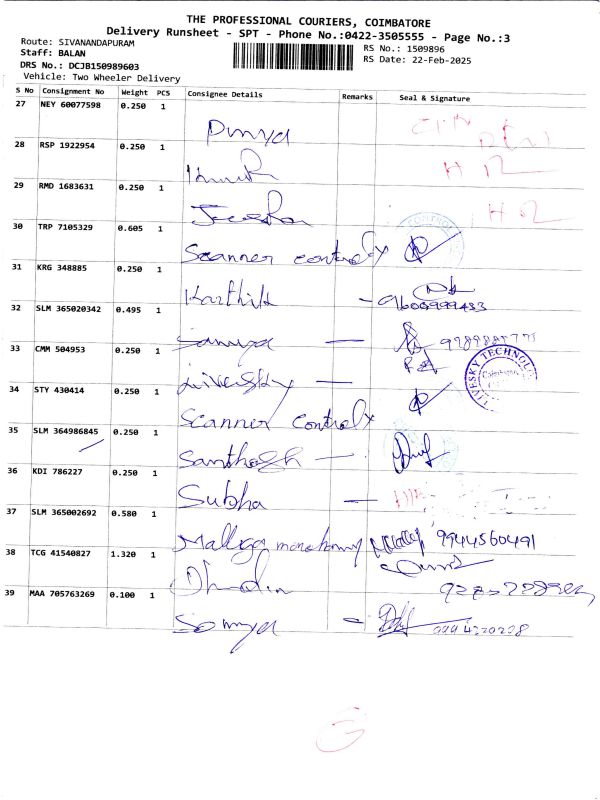 THE PROFESSIONAL COURIERS, COIMBATORE
Delivery Runsheet - SPT - Phone No.:0422-3505555 - Page No.:3
Route: SIVANANDAPURAM
RS No.: 1509896
Staff: BALAN
RS Date: 22-Feb-2025
DRS No.: DCJB150989603
Vehicle: Two Wheeler Delivery
S No Consignment No Weight PCS Consignee Details Remarks Seal & Signature
27 NEY 60077598 0.250 1
28 RSP 1922954 0.250 1
29 RMD 1683631 0.250 1
30 TRP 7105329 0.605 1 Scanner controlx
31 KRG 348885 0.250 1 Karthik
32 SLM 365020342 0.495 1
33 CMM 504953 0.250 1 Livesky LIVESKY TECHNOLO
34 STY 430414 0.250 1 Scanner controlx
35 SLM 364986845 0.250 1 Santhosh
36 KDI 786227 0.250 1 Subha
37 SLM 365002692 0.580 1 9944560491
38 TCG 41540827 1.320 1
39 MAA 705763269 0.100 1 Somya